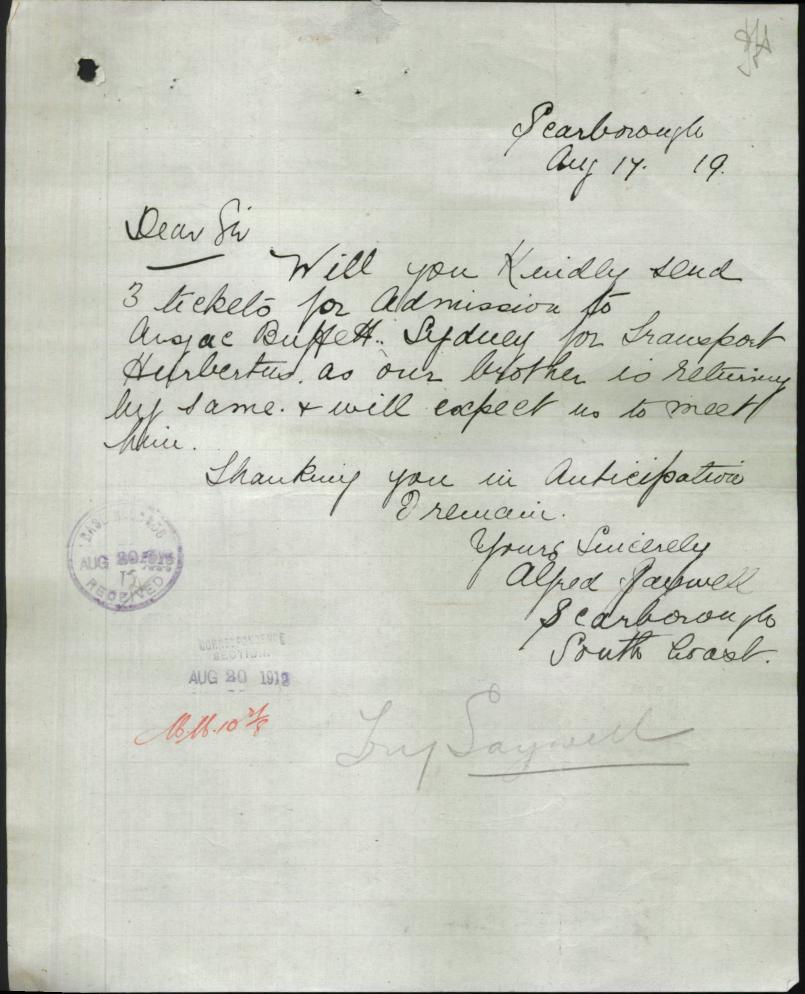 Scarborough
Aug 17. 19.
Dear Sir
Will you Kindly send
3 tickets for Admission to
Anzac Buffett. Sydney for Transport
as our brother is returning
by same. & will expect us to meet
him.
Thanking you in Anticipation
I remain.
Yours Sincerely
Alfred Saywell
Scarborough
South Coast.
AUG 20
RECEIVED
CORRESPONDENCE
SECTION
AUG 20 1919
Saywell